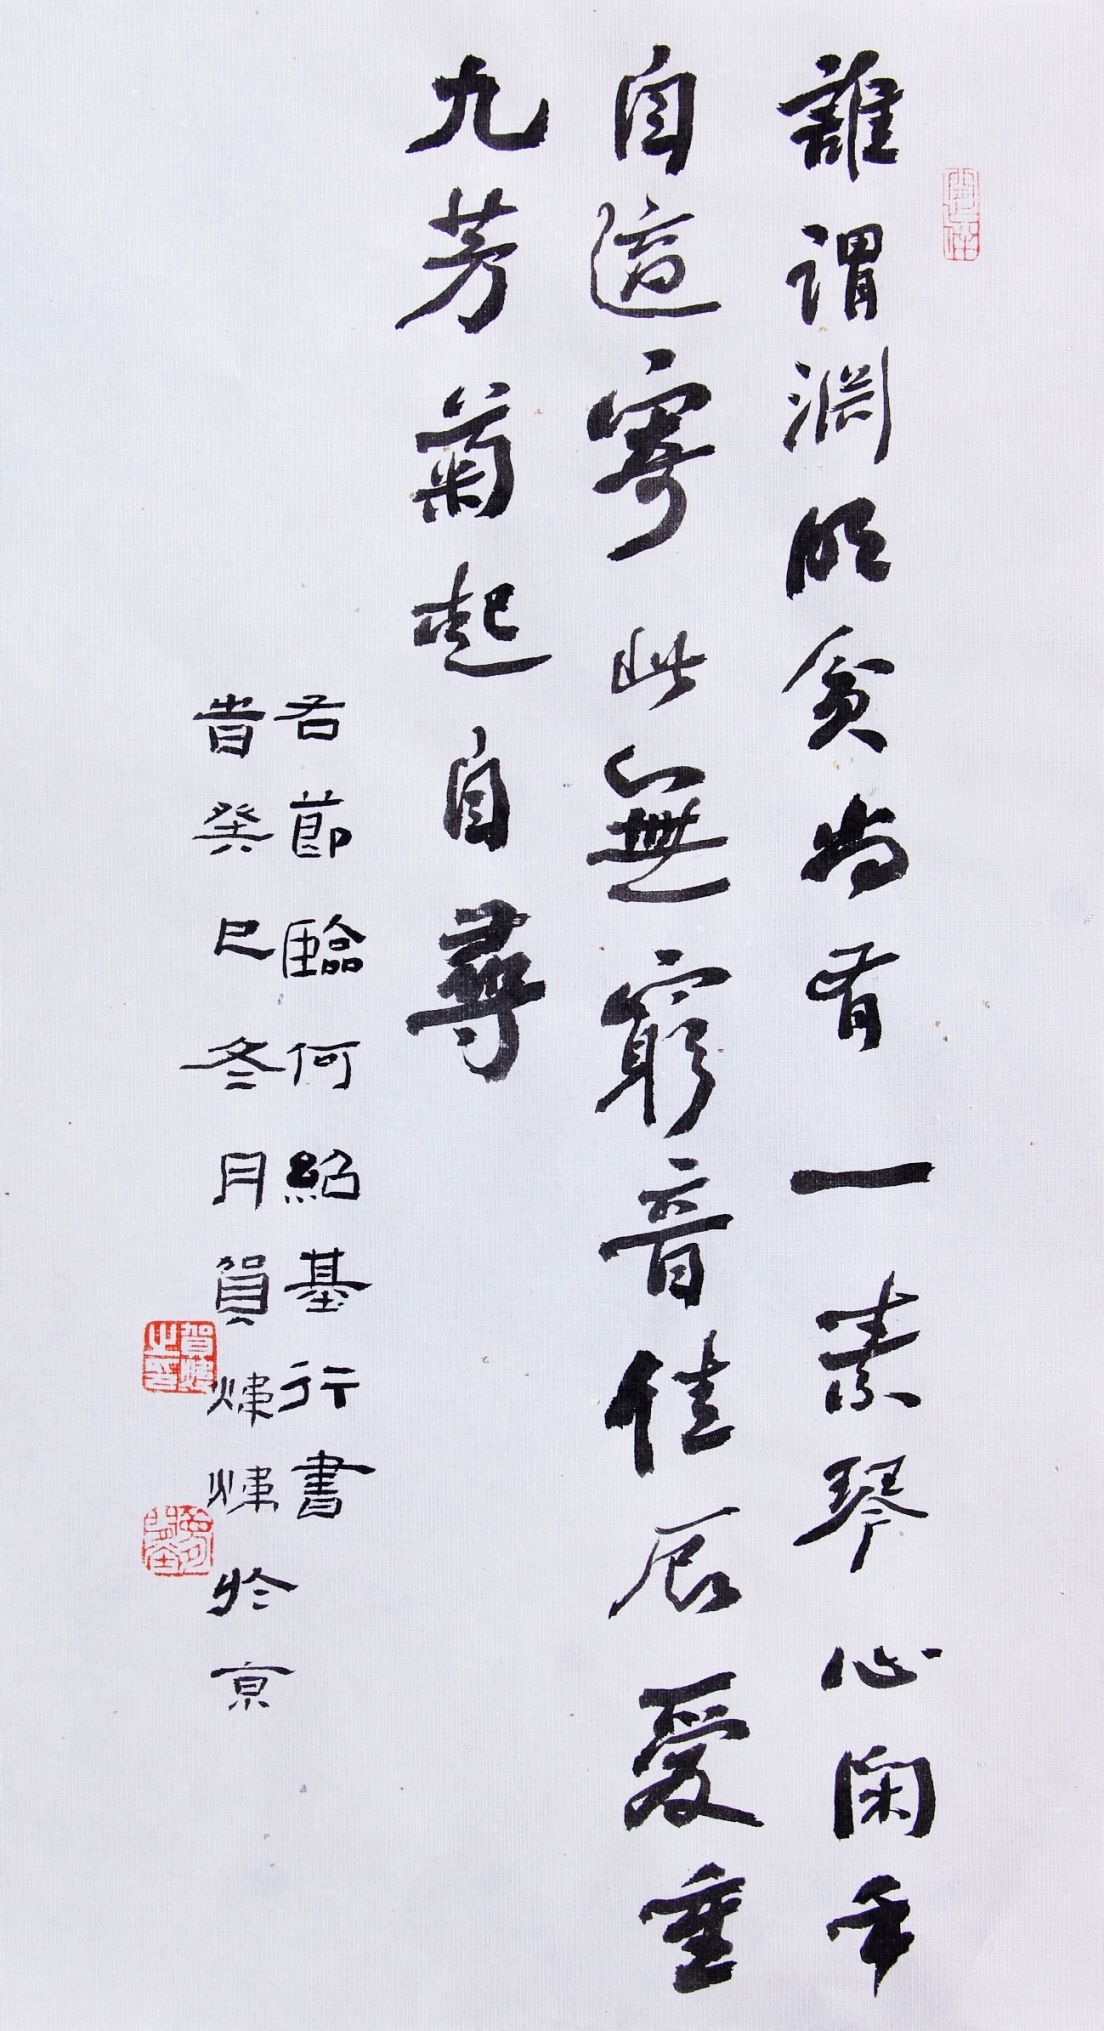 誰謂淵明貧尚有一素琴心閑手
自適寄此無窮音佳辰愛重
九芳菊起自尋
右節臨何紹基行書
旹癸巳冬月賀煒煒於京